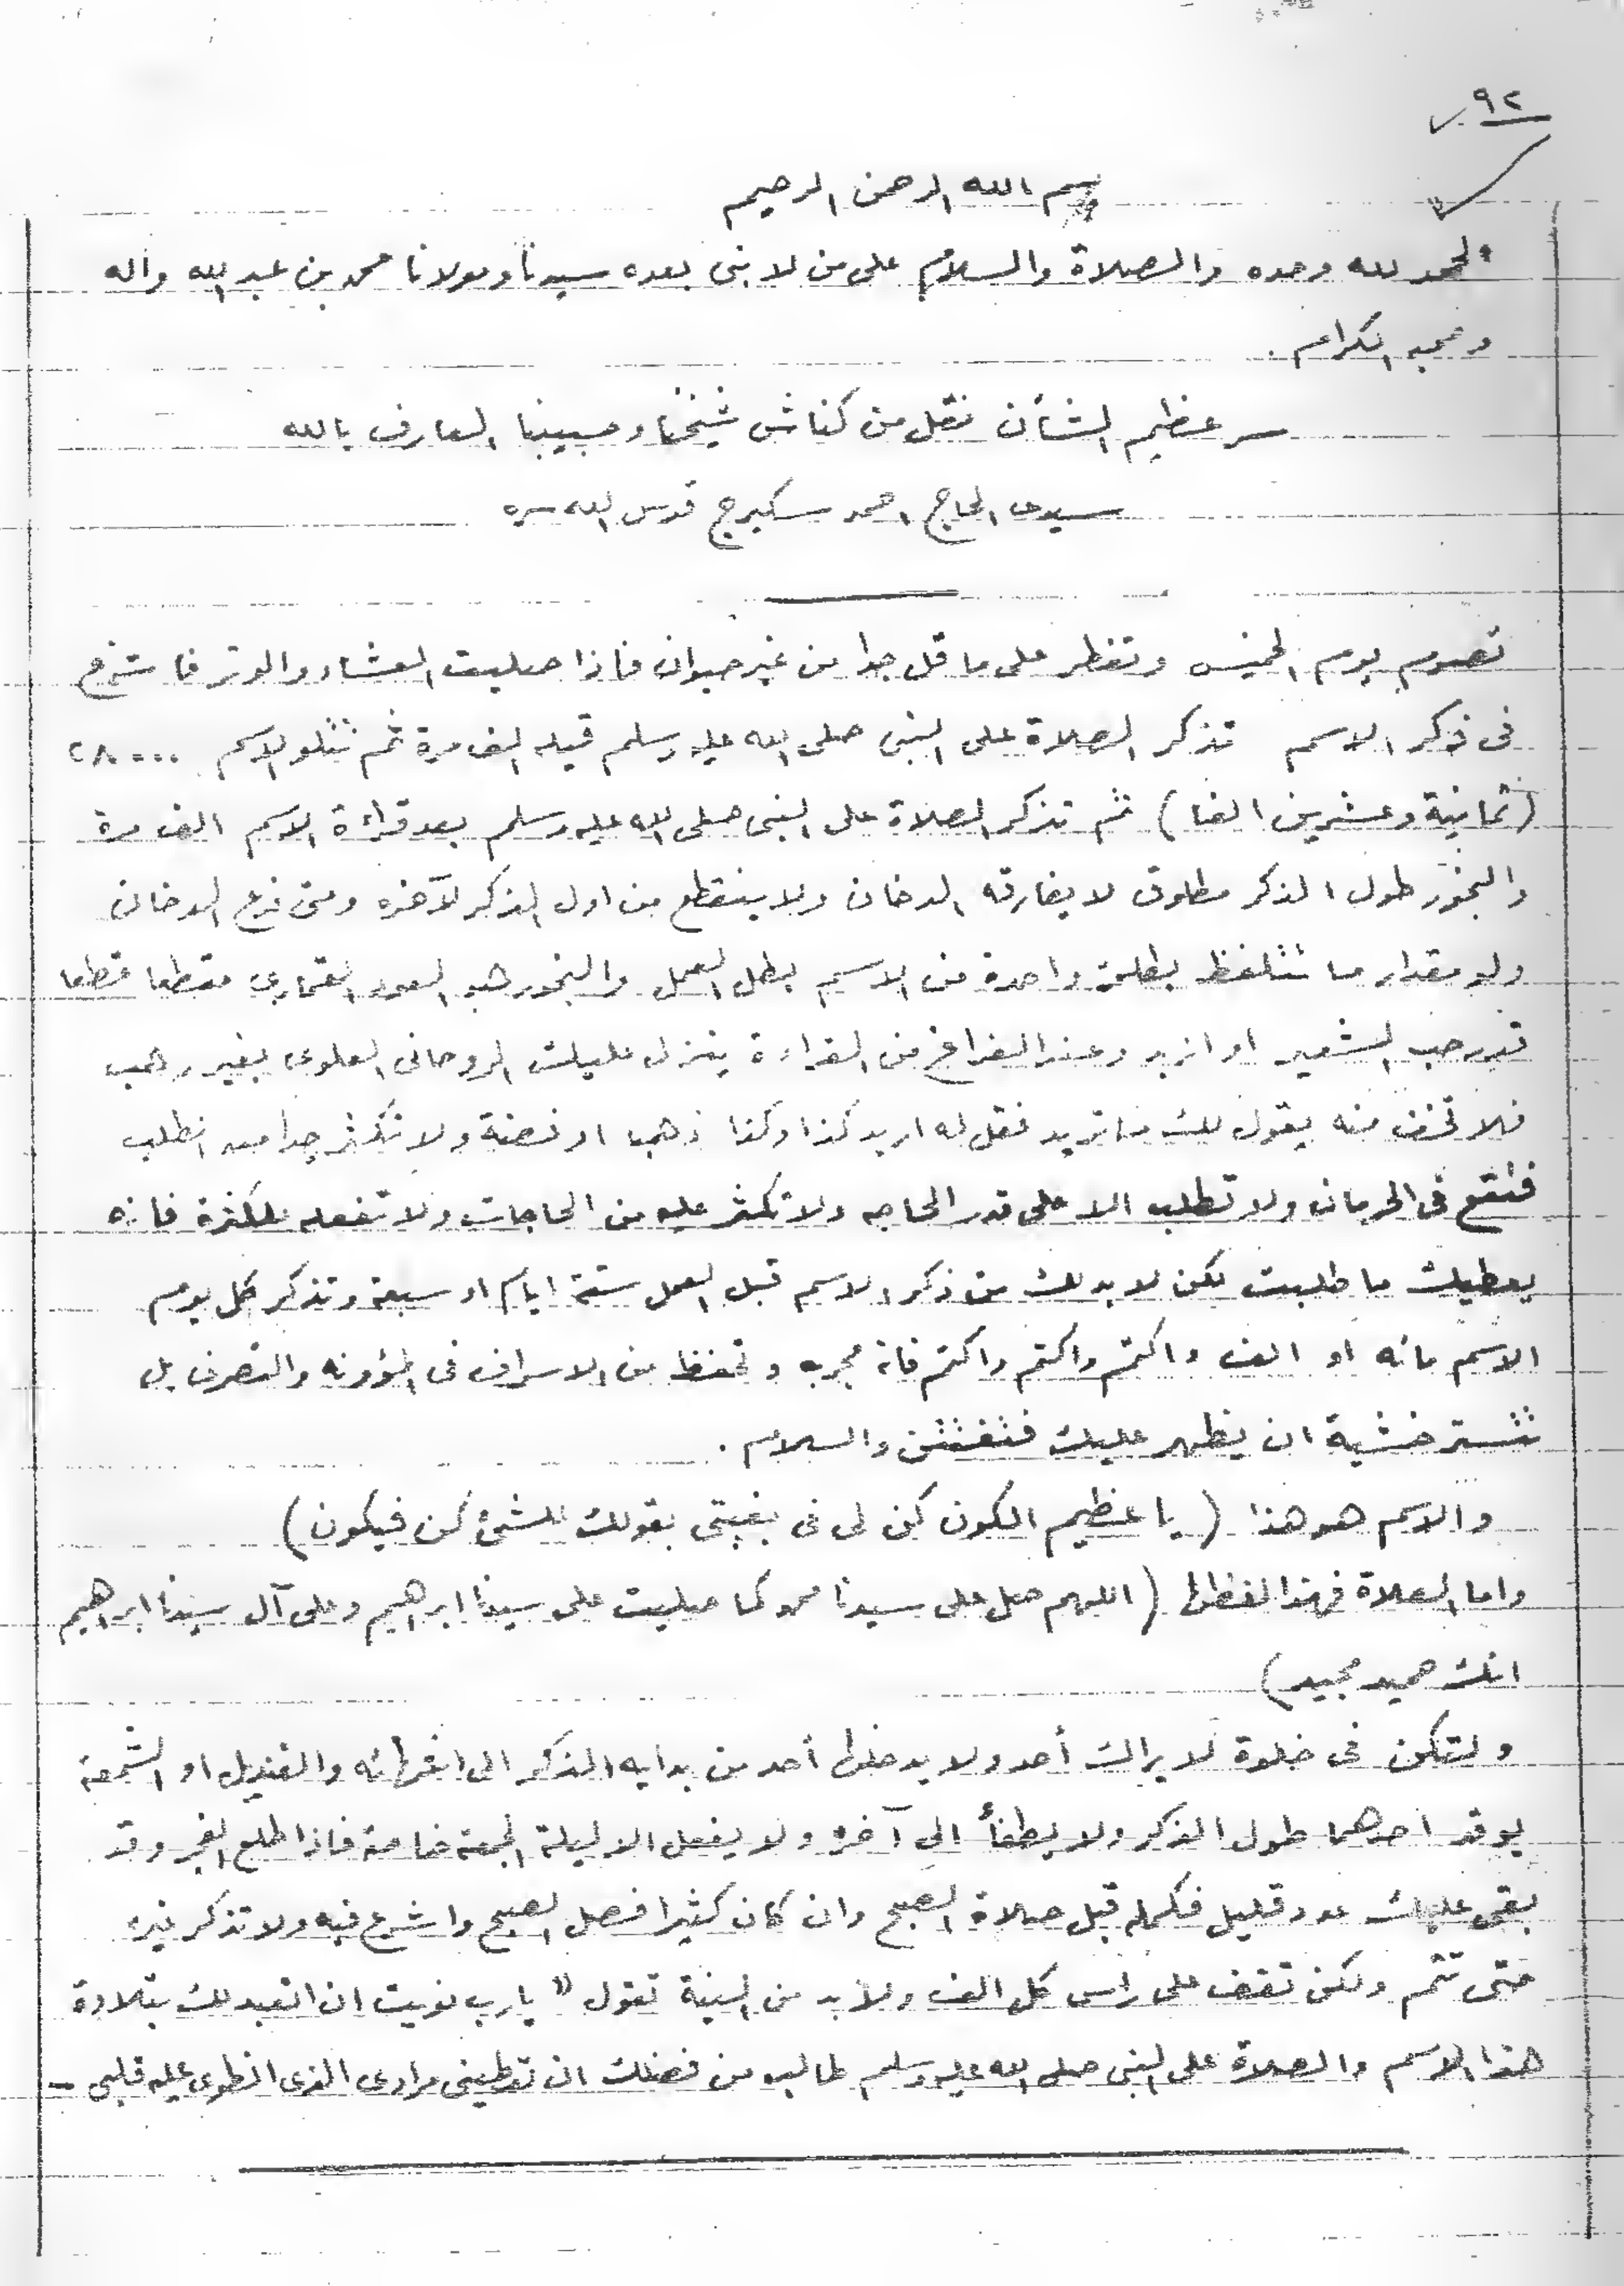 ٩٢
بسم الله الرحمن الرحيم
الحمد لله وحده والصلاة والسلام على من لا نبى بعده سيدنا ومولانا محمد بن عبد الله وآله
وصحبه الكرام .
سر عظيم الشأن نقل من كناش شيخنا وحبيبنا العارف بالله
سيدى الحاج احمد سكيرج قدس الله سره
تصوم يوم الخميس وتفطر على ما قل جدا من غير حيوان فاذا صليت العشاء والوتر فاشرع
فى ذكر الاسم تذكر الصلاة على النبى صلى الله عليه وسلم قبله الف مرة ثم تتلو الاسم ٢٨٠٠٠
(ثمانية وعشرين الفا) ثم تذكر الصلاة على النبى صلى الله عليه وسلم بعد قراءة الاسم الف مرة
والبخور طول الذكر مطلوق لا يفارقه الدخان ولا ينقطع من اول الذكر لآخره ومتى فرغ الدخان
ولو مقدار ما تتلفظ بكلمة واحدة من الاسم بطل العمل والبخور هو العود القمارى مقطعا قطعا
قدر حب الشعير او ازيد وعند الفراغ من القراءة ينزل عليك الروحانى العلوى بغير رهب
فلا تخف منه يقول لك ما تريد فقل له اريد كذا وكذا ذهبا او فضة ولا تكثر جدا من الطلب
فتقع فى الحرمان ولا تطلب الا على قدر الحاجه ولا تكثر عليه من الحاجات ولا تفعله للكثرة فانه
يعطيك ما طلبت لكن لا بد لك من ذكر الاسم قبل العمل ستة ايام او سبعة وتذكر كل يوم
الاسم مائه او الف واكتم واكتم واكتم فانه مجرب وتحفظ من الاسراف فى المؤونه والتصرف بل
تتستر خشية ان يظهر عليك فتفتتن والسلام .
والاسم هو هذا (يا عظيم الكون كن لى فى بغيتى بقولك للشئ كن فيكون)
واما الصلاة فهذا لفظها (اللهم صل على سيدنا محمد كما صليت على سيدنا ابرهيم وعلى آل سيدنا ابرهيم
انك حميد مجيد)
ولتكن فى خلوة لا يراك أحد ولا يدخلها أحد من بدايه الذكر الى انتهائه والقنديل او الشمعة
يوقد احدهما طول الذكر ولا يطفأ الى آخره ولا يفعل الا ليلة الجمعة خاصة فاذا طلع الفجر وقد
بقى عليك عدد قليل فكمله قبل صلاة الصبح وان كان كثيرا فصل الصبح واشرع فيه ولا تذكر غيره
حتى تتم ولكن تقف على راس كل الف ولا بد من النية تقول " يا رب نويت ان اتعبد لك بتلاوة
هذا الاسم والصلاة على النبى صلى الله عليه وسلم طالبا من فضلك ان تعطينى مرادى الذى انطوى عليه قلبى -